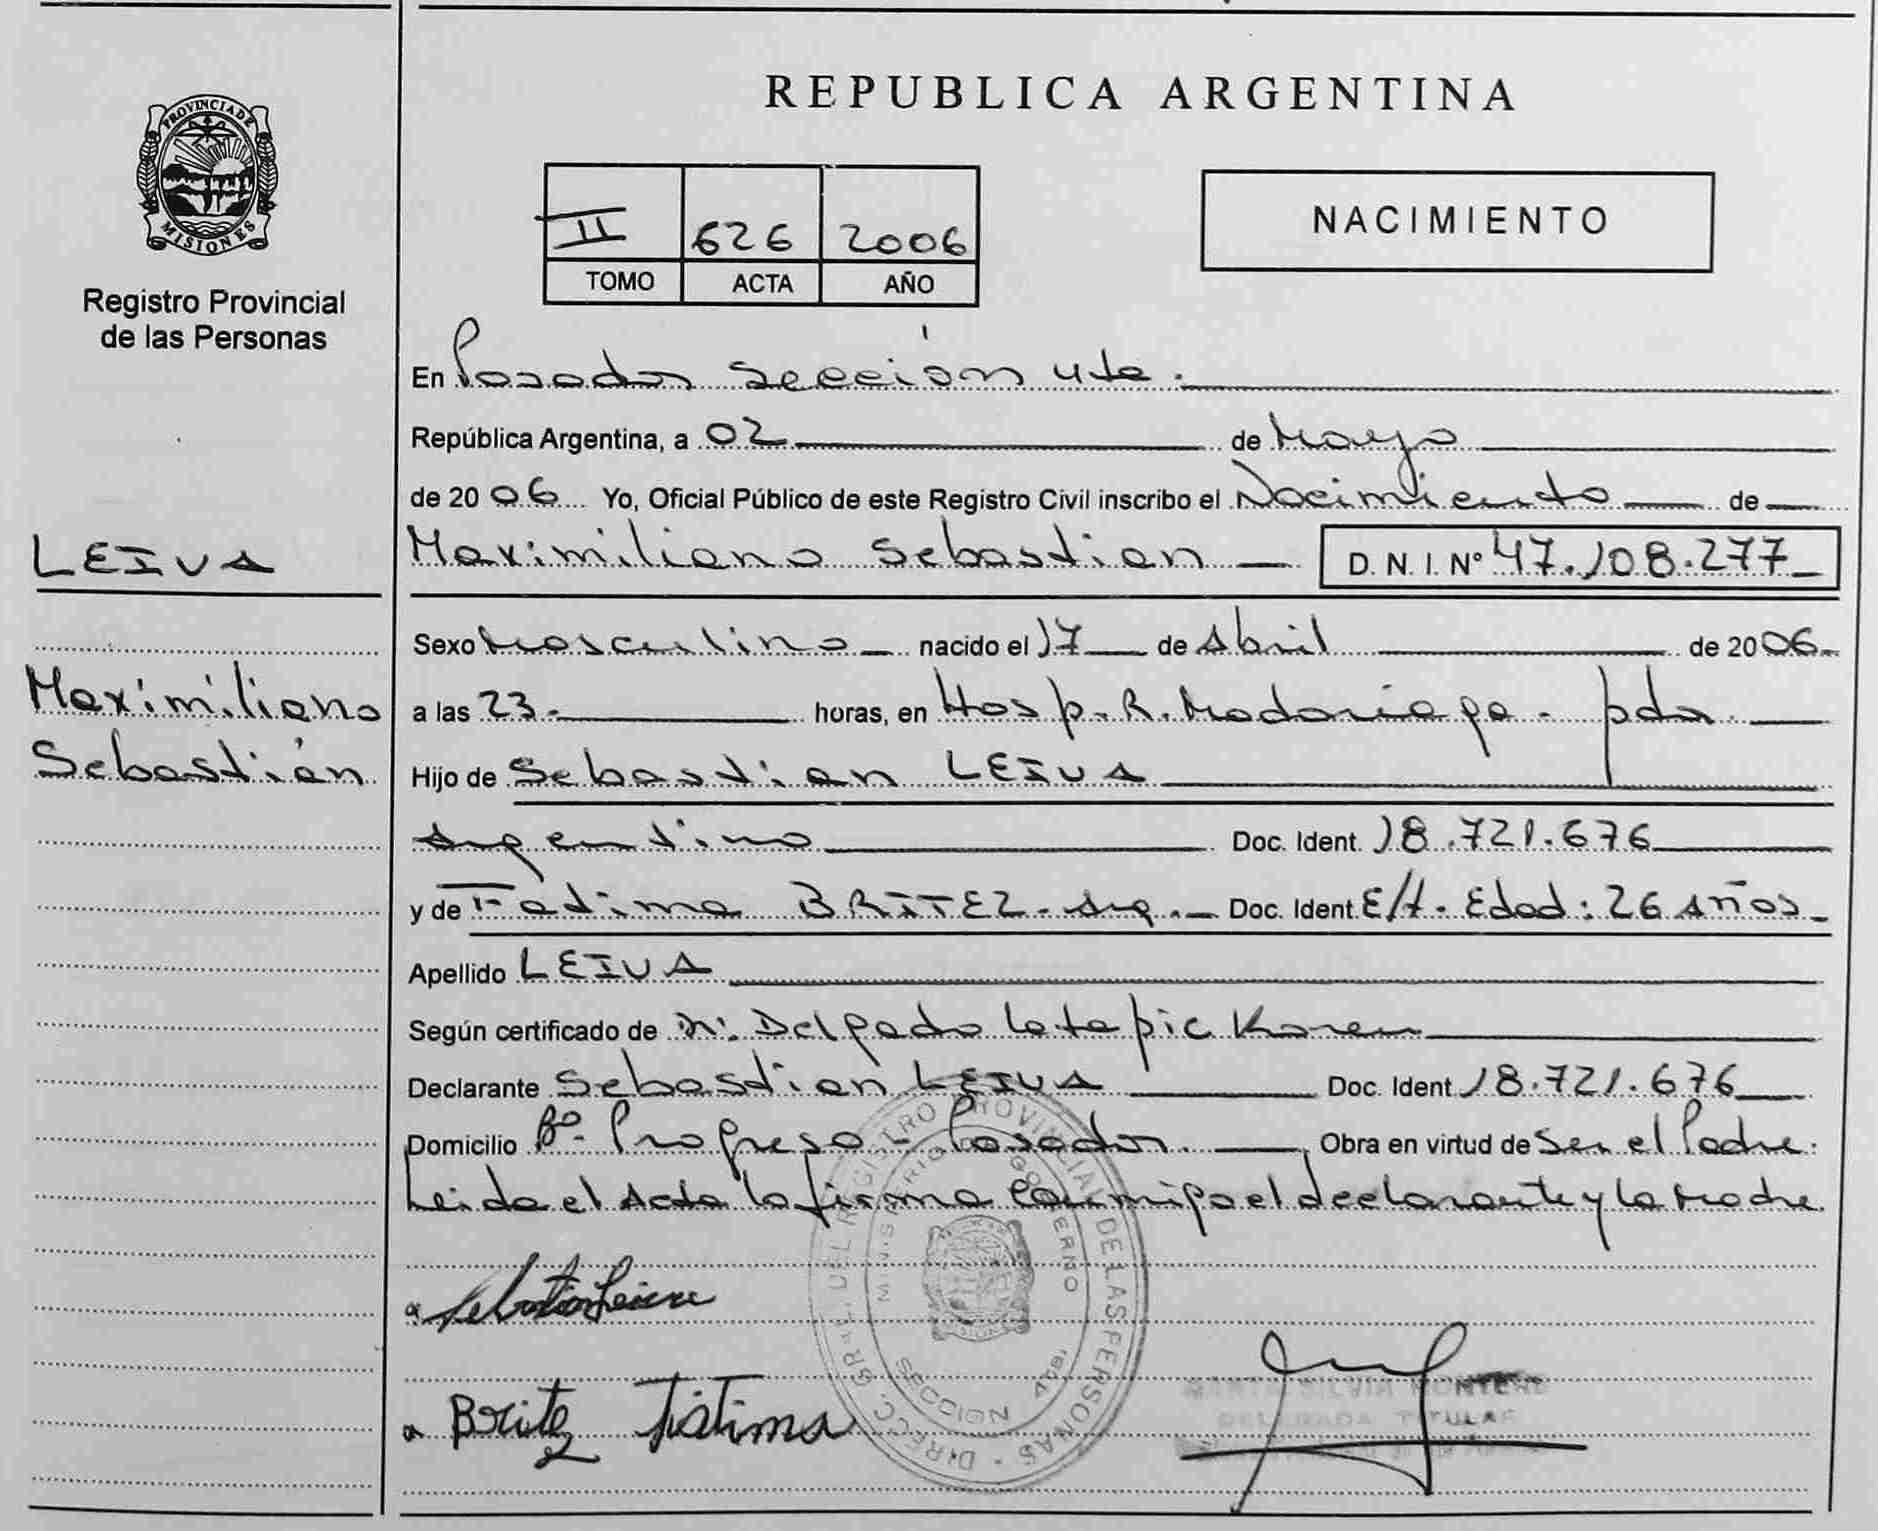 PROVINCIA DE
MISIONES
Registro Provincial
de las Personas
LEIVA
Maximiliano
Sebastián
REPUBLICA ARGENTINA
II 626 2006
TOMO ACTA AÑO
NACIMIENTO
En Posadas Sección 4ta.
República Argentina, a 02 de Mayo
de 2006 Yo, Oficial Público de este Registro Civil inscribo el Nacimiento de
Maximiliano Sebastian D. N. I. Nº 47.108.277
Sexo Masculino nacido el 17 de Abril de 2006
a las 23. horas, en Hosp. R. Madariaga. pdas.
Hijo de Sebastian LEIVA
Argentino Doc. Ident. 18.721.676
y de Fatima BRITEZ. Arg. Doc. Ident E/T. Edad: 26 Años
Apellido LEIVA
Según certificado de Delgado Karen
Declarante Sebastian LEIVA Doc. Ident 18.721.676
Domicilio Bº. Progreso. Posadas. Obra en virtud de Ser el Padre.
Leida el Acta la firma conmigo el declarante y la Madre
Sebastian Leiva
Britez Fatima
DIRECC. GRAL. DEL REGISTRO PROVINCIAL DE LAS PERSONAS
MINISTERIO GOBIERNO
SECCION
MARTA SILVIA MONTERO
DELEGADA TITULAR